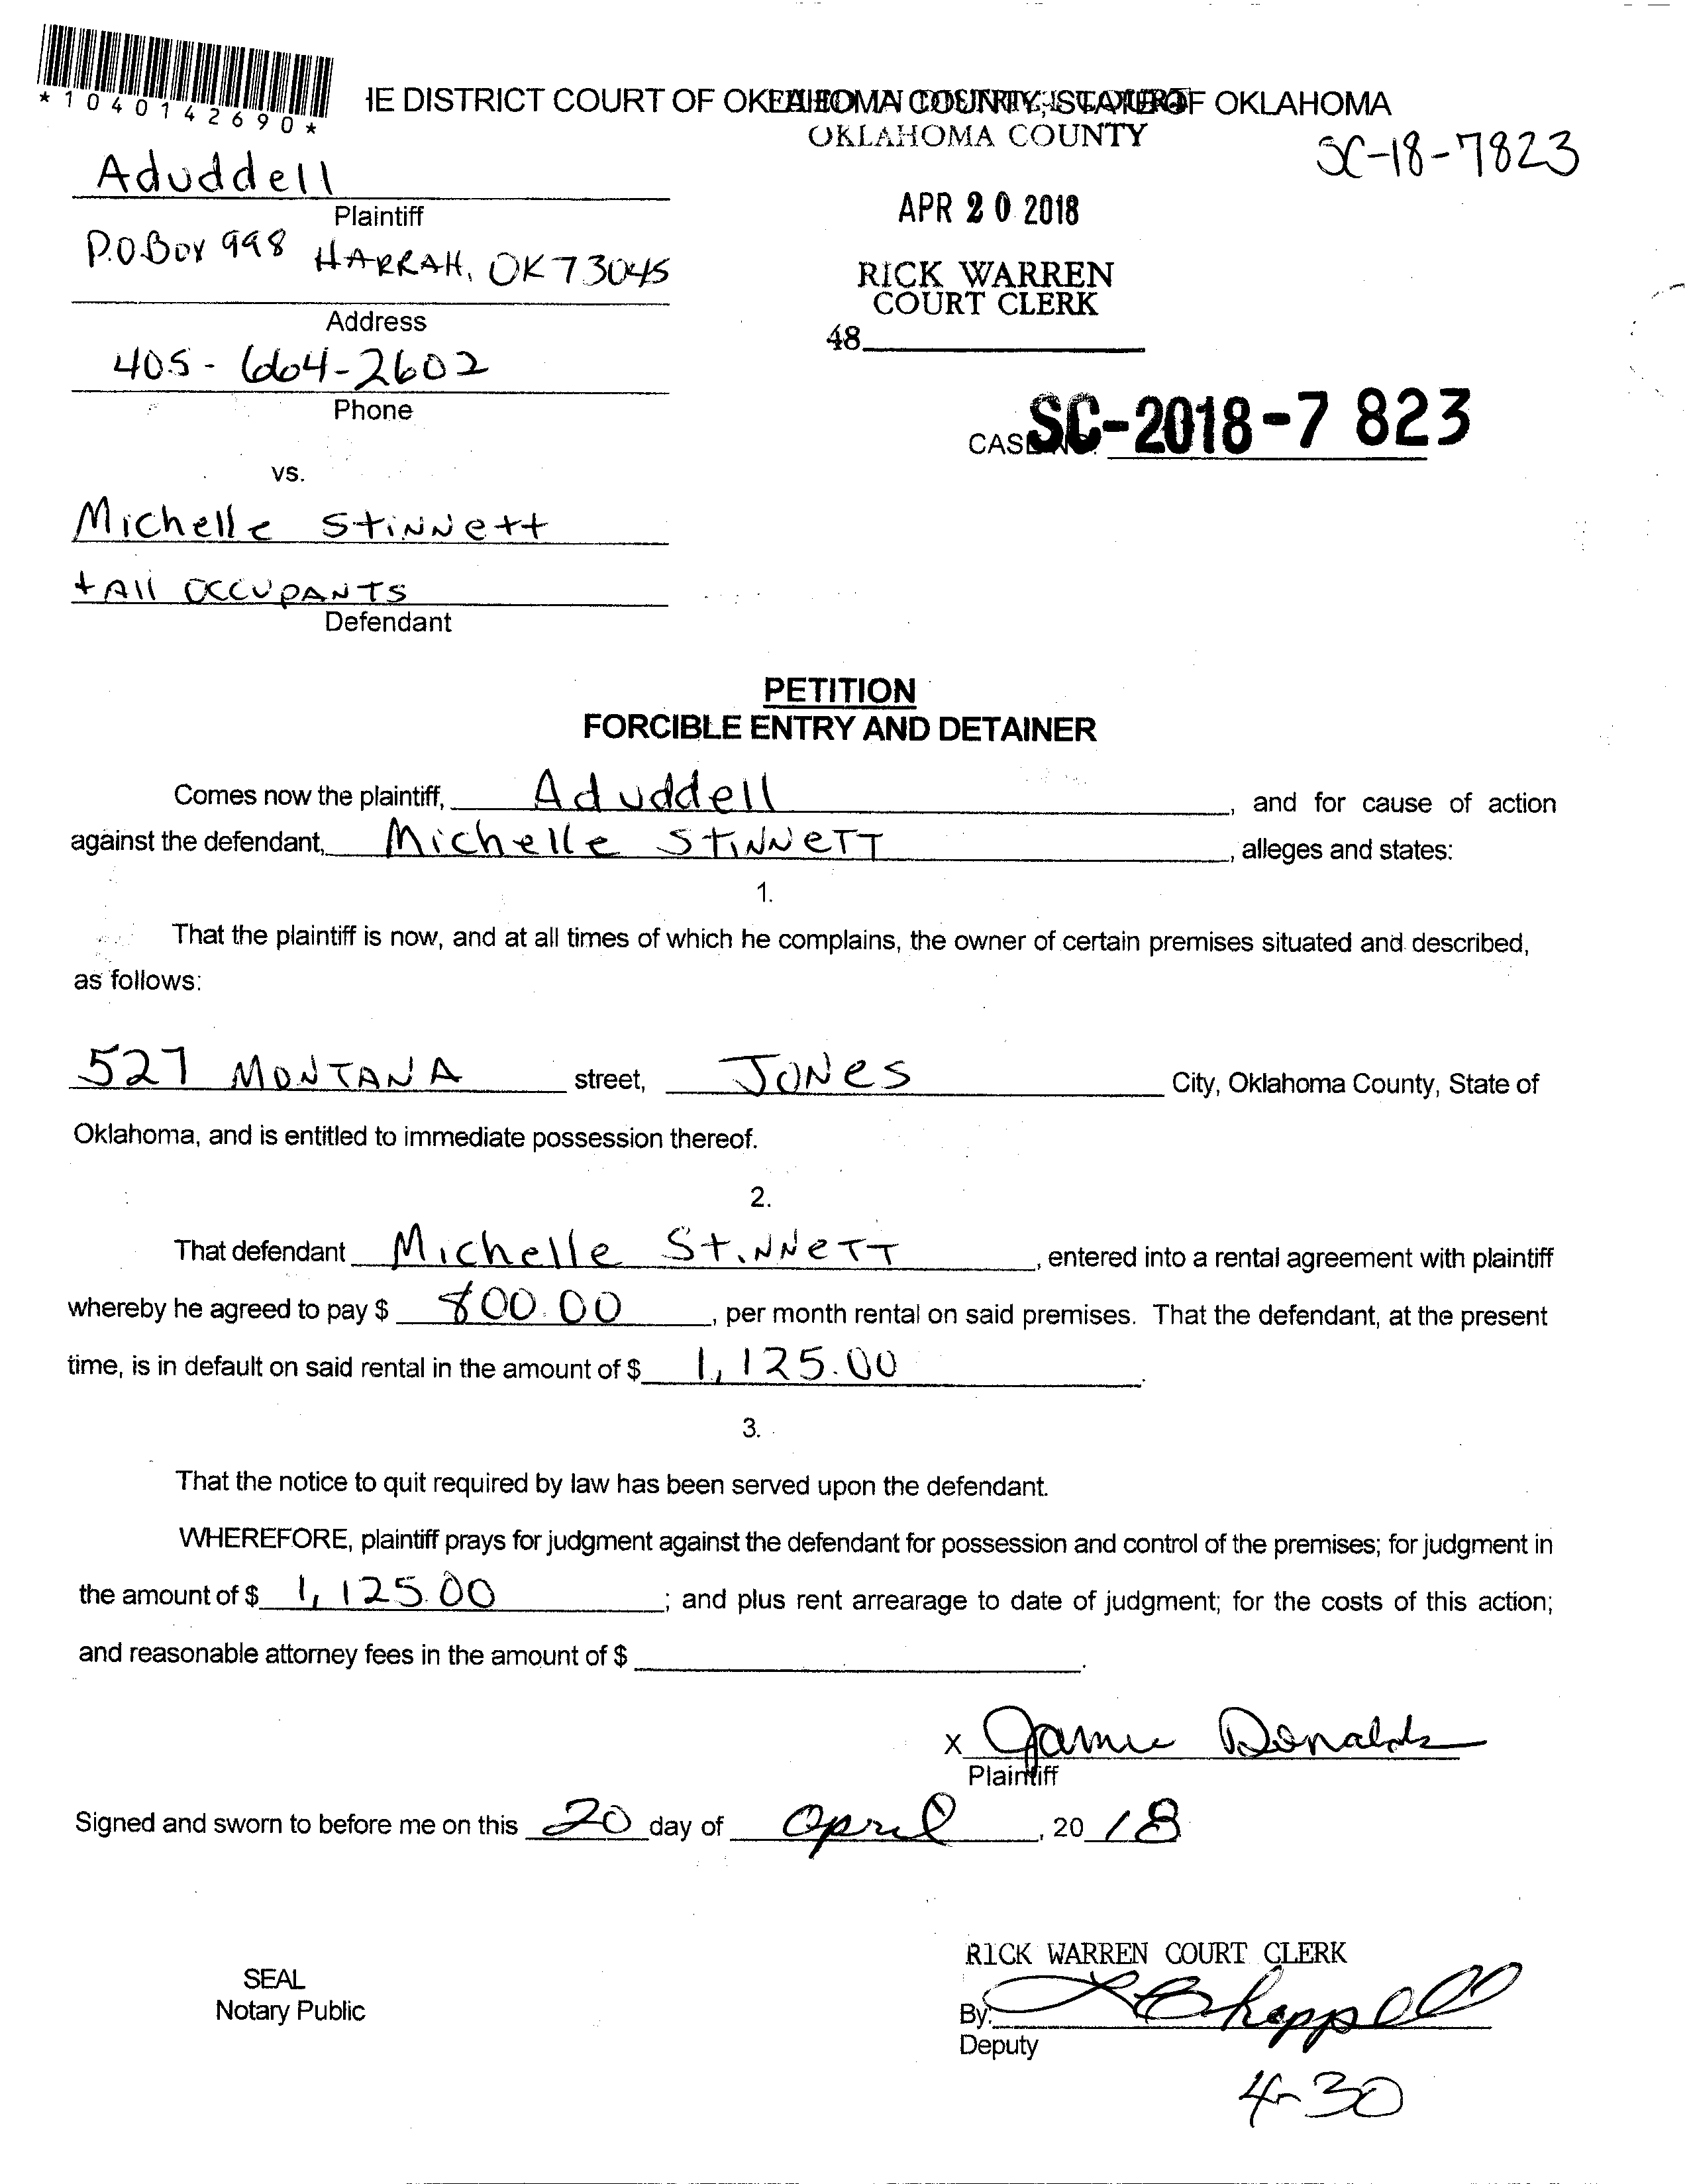 *1040142690*
IE DISTRICT COURT OF OKLAHOMA COUNTY, STATE OF OKLAHOMA
OKLAHOMA COUNTY
SC-18-7823
Aduddell
Plaintiff
APR 20 2018
P.O.Box 998 HARRAH, OK 73045
RICK WARREN
COURT CLERK
Address
48
405-664-2602
Phone
CASE NO. SC-2018-7 823
vs.
Michelle Stinnett
+ All OCCUPANTS
Defendant
PETITION
FORCIBLE ENTRY AND DETAINER
Comes now the plaintiff, Aduddell, and for cause of action
against the defendant, Michelle Stinnett, alleges and states:
1.
That the plaintiff is now, and at all times of which he complains, the owner of certain premises situated and described,
as follows:
527 MONTANA street, JONES City, Oklahoma County, State of
Oklahoma, and is entitled to immediate possession thereof.
2.
That defendant Michelle Stinnett, entered into a rental agreement with plaintiff
whereby he agreed to pay $ 800.00, per month rental on said premises. That the defendant, at the present
time, is in default on said rental in the amount of $ 1,125.00.
3.
That the notice to quit required by law has been served upon the defendant.
WHEREFORE, plaintiff prays for judgment against the defendant for possession and control of the premises; for judgment in
the amount of $ 1,125.00; and plus rent arrearage to date of judgment; for the costs of this action;
and reasonable attorney fees in the amount of $ .
x Jamie Donalds
Plaintiff
Signed and sworn to before me on this 20 day of April, 2018
RICK WARREN COURT CLERK
SEAL
Notary Public
By: Chappell
Deputy
4-30